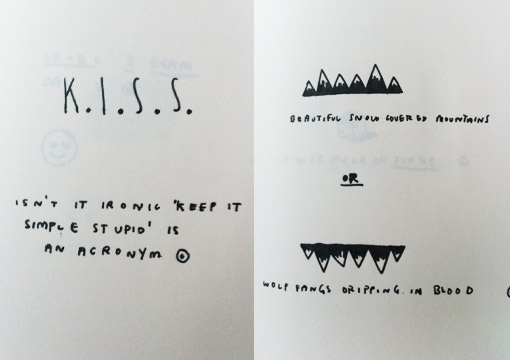 K.I.S.S.
ISN'T IT IRONIC 'KEEP IT
SIMPLE STUPID' IS
AN ACRONYM
BEAUTIFUL SNOW COVERED MOUNTAINS
OR
WOLF FANGS DRIPPING IN BLOOD